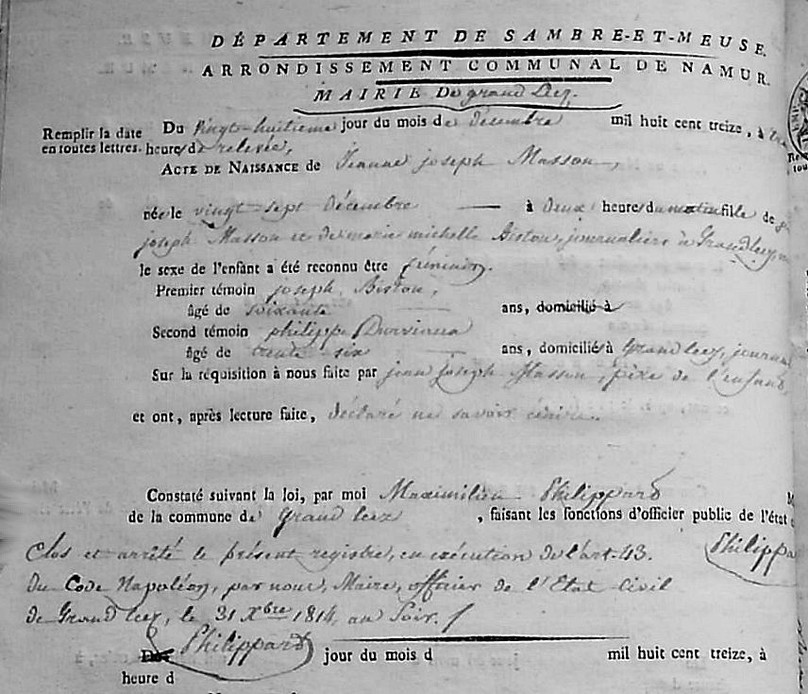 DÉPARTEMENT DE SAMBRE-ET-MEUSE.
ARRONDISSEMENT COMMUNAL DE NAMUR.
MAIRIE De grand Leez.
Remplir la date
en toutes lettres.
Du vingt-huitieme jour du mois de decembre mil huit cent treize, à
heures de relevée,
ACTE DE NAISSANCE de Jeanne joseph Masson,
née le vingt-sept décembre à deux heures du matin fille de
joseph Masson et de marie michelle Biston, journaliers à Grandleez,
le sexe de l'enfant a été reconnu être féminin.
Premier témoin joseph Biston,
âgé de soixante ans, domicilié à
Second témoin philippe
âgé de trente six ans, domicilié à Grandleez,
Sur la réquisition à nous faite par jean joseph Masson, père de l'enfant,
et ont, après lecture faite, déclaré ne savoir écrire.
Constaté suivant la loi, par moi Maximilien Philippard
de la commune de Grand leez , faisant les fonctions d'officier public de l'état
Clos et arrêté le présent registre, en exécution de l'art. 43.
du Code Napoléon, par nous, Maire, officier de l'Etat Civil
de Grand leez, le 31 Xbre 1814, au Soir.
Philippard
jour du mois d mil huit cent treize, à
heure d